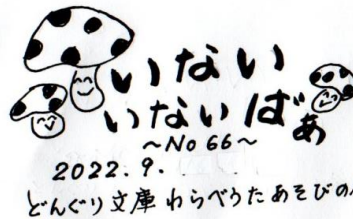 いない
いないばぁ
~No 66~
2022.9.
どんぐり文庫わらべうたあそびの